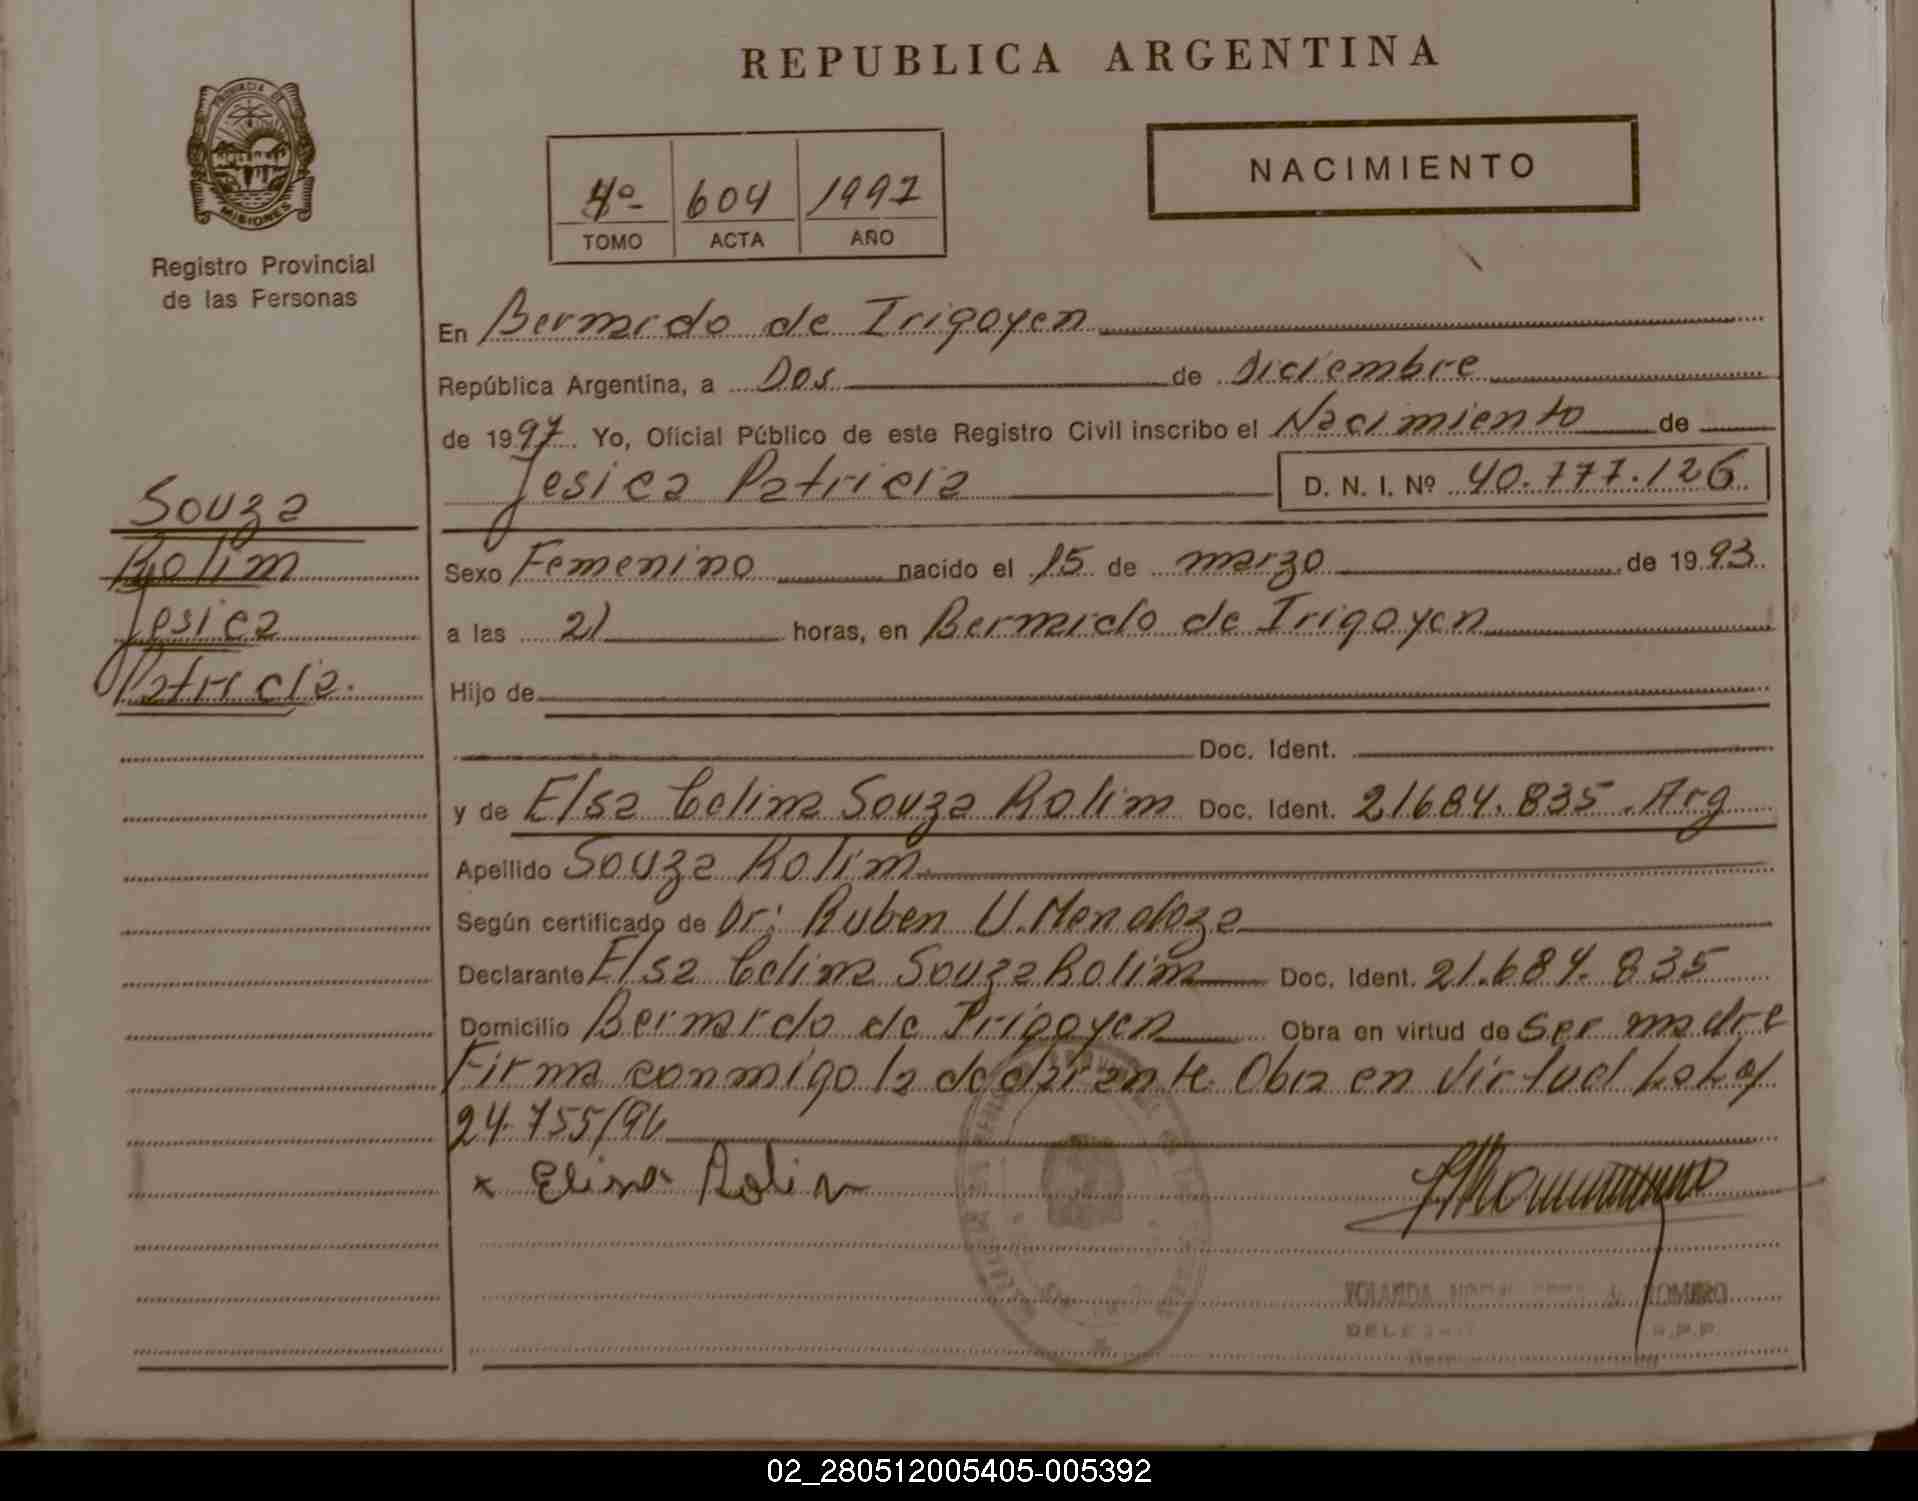 REPUBLICA ARGENTINA
PROVINCIA DE
MISIONES
Registro Provincial
de las Personas
4º 604 1997
TOMO ACTA AÑO
NACIMIENTO
En Bernardo de Irigoyen
República Argentina, a Dos de Diciembre
de 1997. Yo, Oficial Público de este Registro Civil inscribo el Nacimiento de
Jesica Patricia D. N. I. Nº 40.777.126
Souza
Rolim
Jesica
Patricia.
Sexo Femenino nacido el 15 de marzo de 1993.
a las 21 horas, en Bernardo de Irigoyen
Hijo de
Doc. Ident.
y de Elsa Celina Souza Rolim Doc. Ident. 21684.835.Arg
Apellido Souza Rolim
Según certificado de Dr: Ruben U. Mendoza
Declarante Elsa Celina Souza Rolim Doc. Ident. 21.684.835
Domicilio Bernardo de Irigoyen Obra en virtud de ser madre
Firma conmigo la declarante. Obra en virtud La Ley
24.755/96
x Elisa Rolin
YOLANDA ROMERO
R.P.P.
02_280512005405-005392